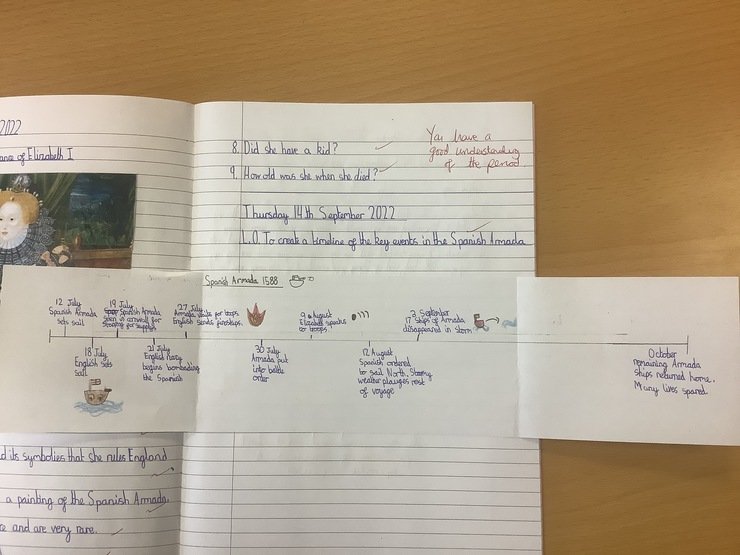 2022
of Elizabeth I
8. Did she have a kid?
9. How old was she when she died?
You have a
good understanding
of the period.
Thursday 14th September 2022
L.O. To create a timeline of the key events in the Spanish Armada
Spanish Armada 1588
12 July
Spanish Armada
sets sail
18 July
English sets
sail
19 July
Spanish Armada
seen in cornwall for
stopping for supplies
21 July
English navy
begins bombading
the Spanish
27 July
Armada waits for troops
English sends fireships.
30 July
Armada put
into battle
order
9 August
Elizabeth speaks
to troops
12 August
Spanish ordered
to sail North. Stormy
weather plauges rest
of voyage
2 September
17 ships of Armada
disappeared in storm
October
remaining Armada
ships returned home.
Many lives spared
its symbolies that she rules England
a painting of the Spanish Armada.
and are very rare.